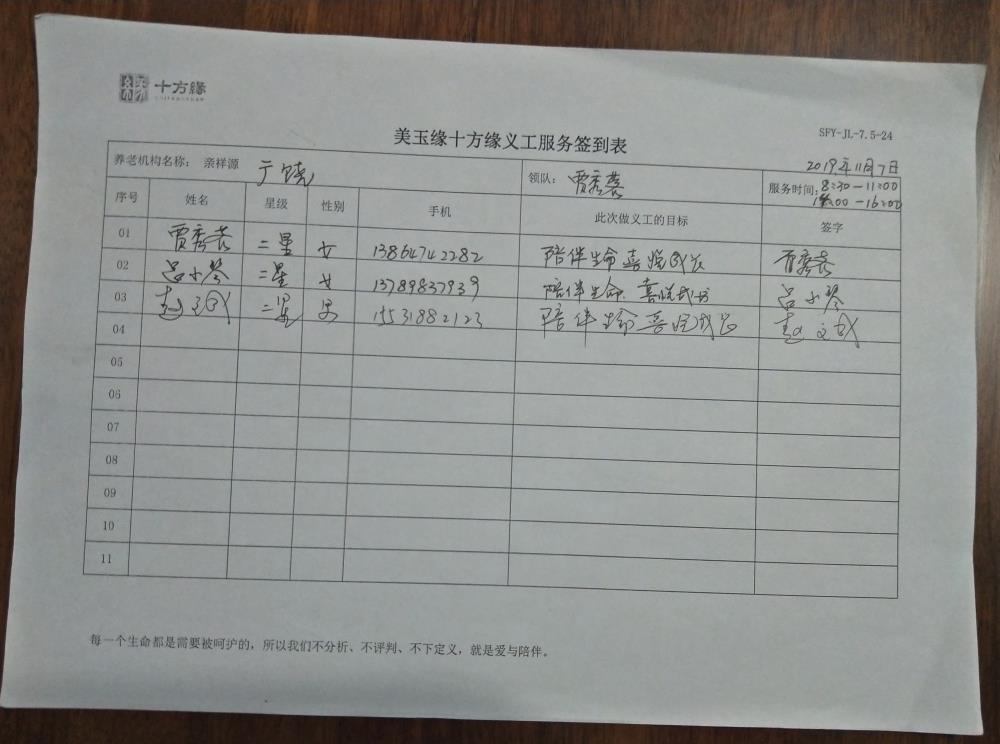 十方缘
SFY-JL-7.5-24
美玉缘十方缘义工服务签到表
养老机构名称： 亲祥源 广饶 领队： 贾秀蓉 2019年11月7日
服务时间： 8:30-11:00
14:00-16:00
序号 姓名 星级 性别 手机 此次做义工的目标 签字
01 贾秀蓉 二星 女 13864742282 陪伴生命喜悦成长 贾秀蓉
02 吕小琴 二星 女 13789837939 陪伴生命.喜悦成长 吕小琴
03 赵文成 二星 男 15531882123 陪伴生命喜悦成长 赵文成
04
05
06
07
08
09
10
11
每一个生命都是需要被呵护的，所以我们不分析、不评判、不下定义，就是爱与陪伴。